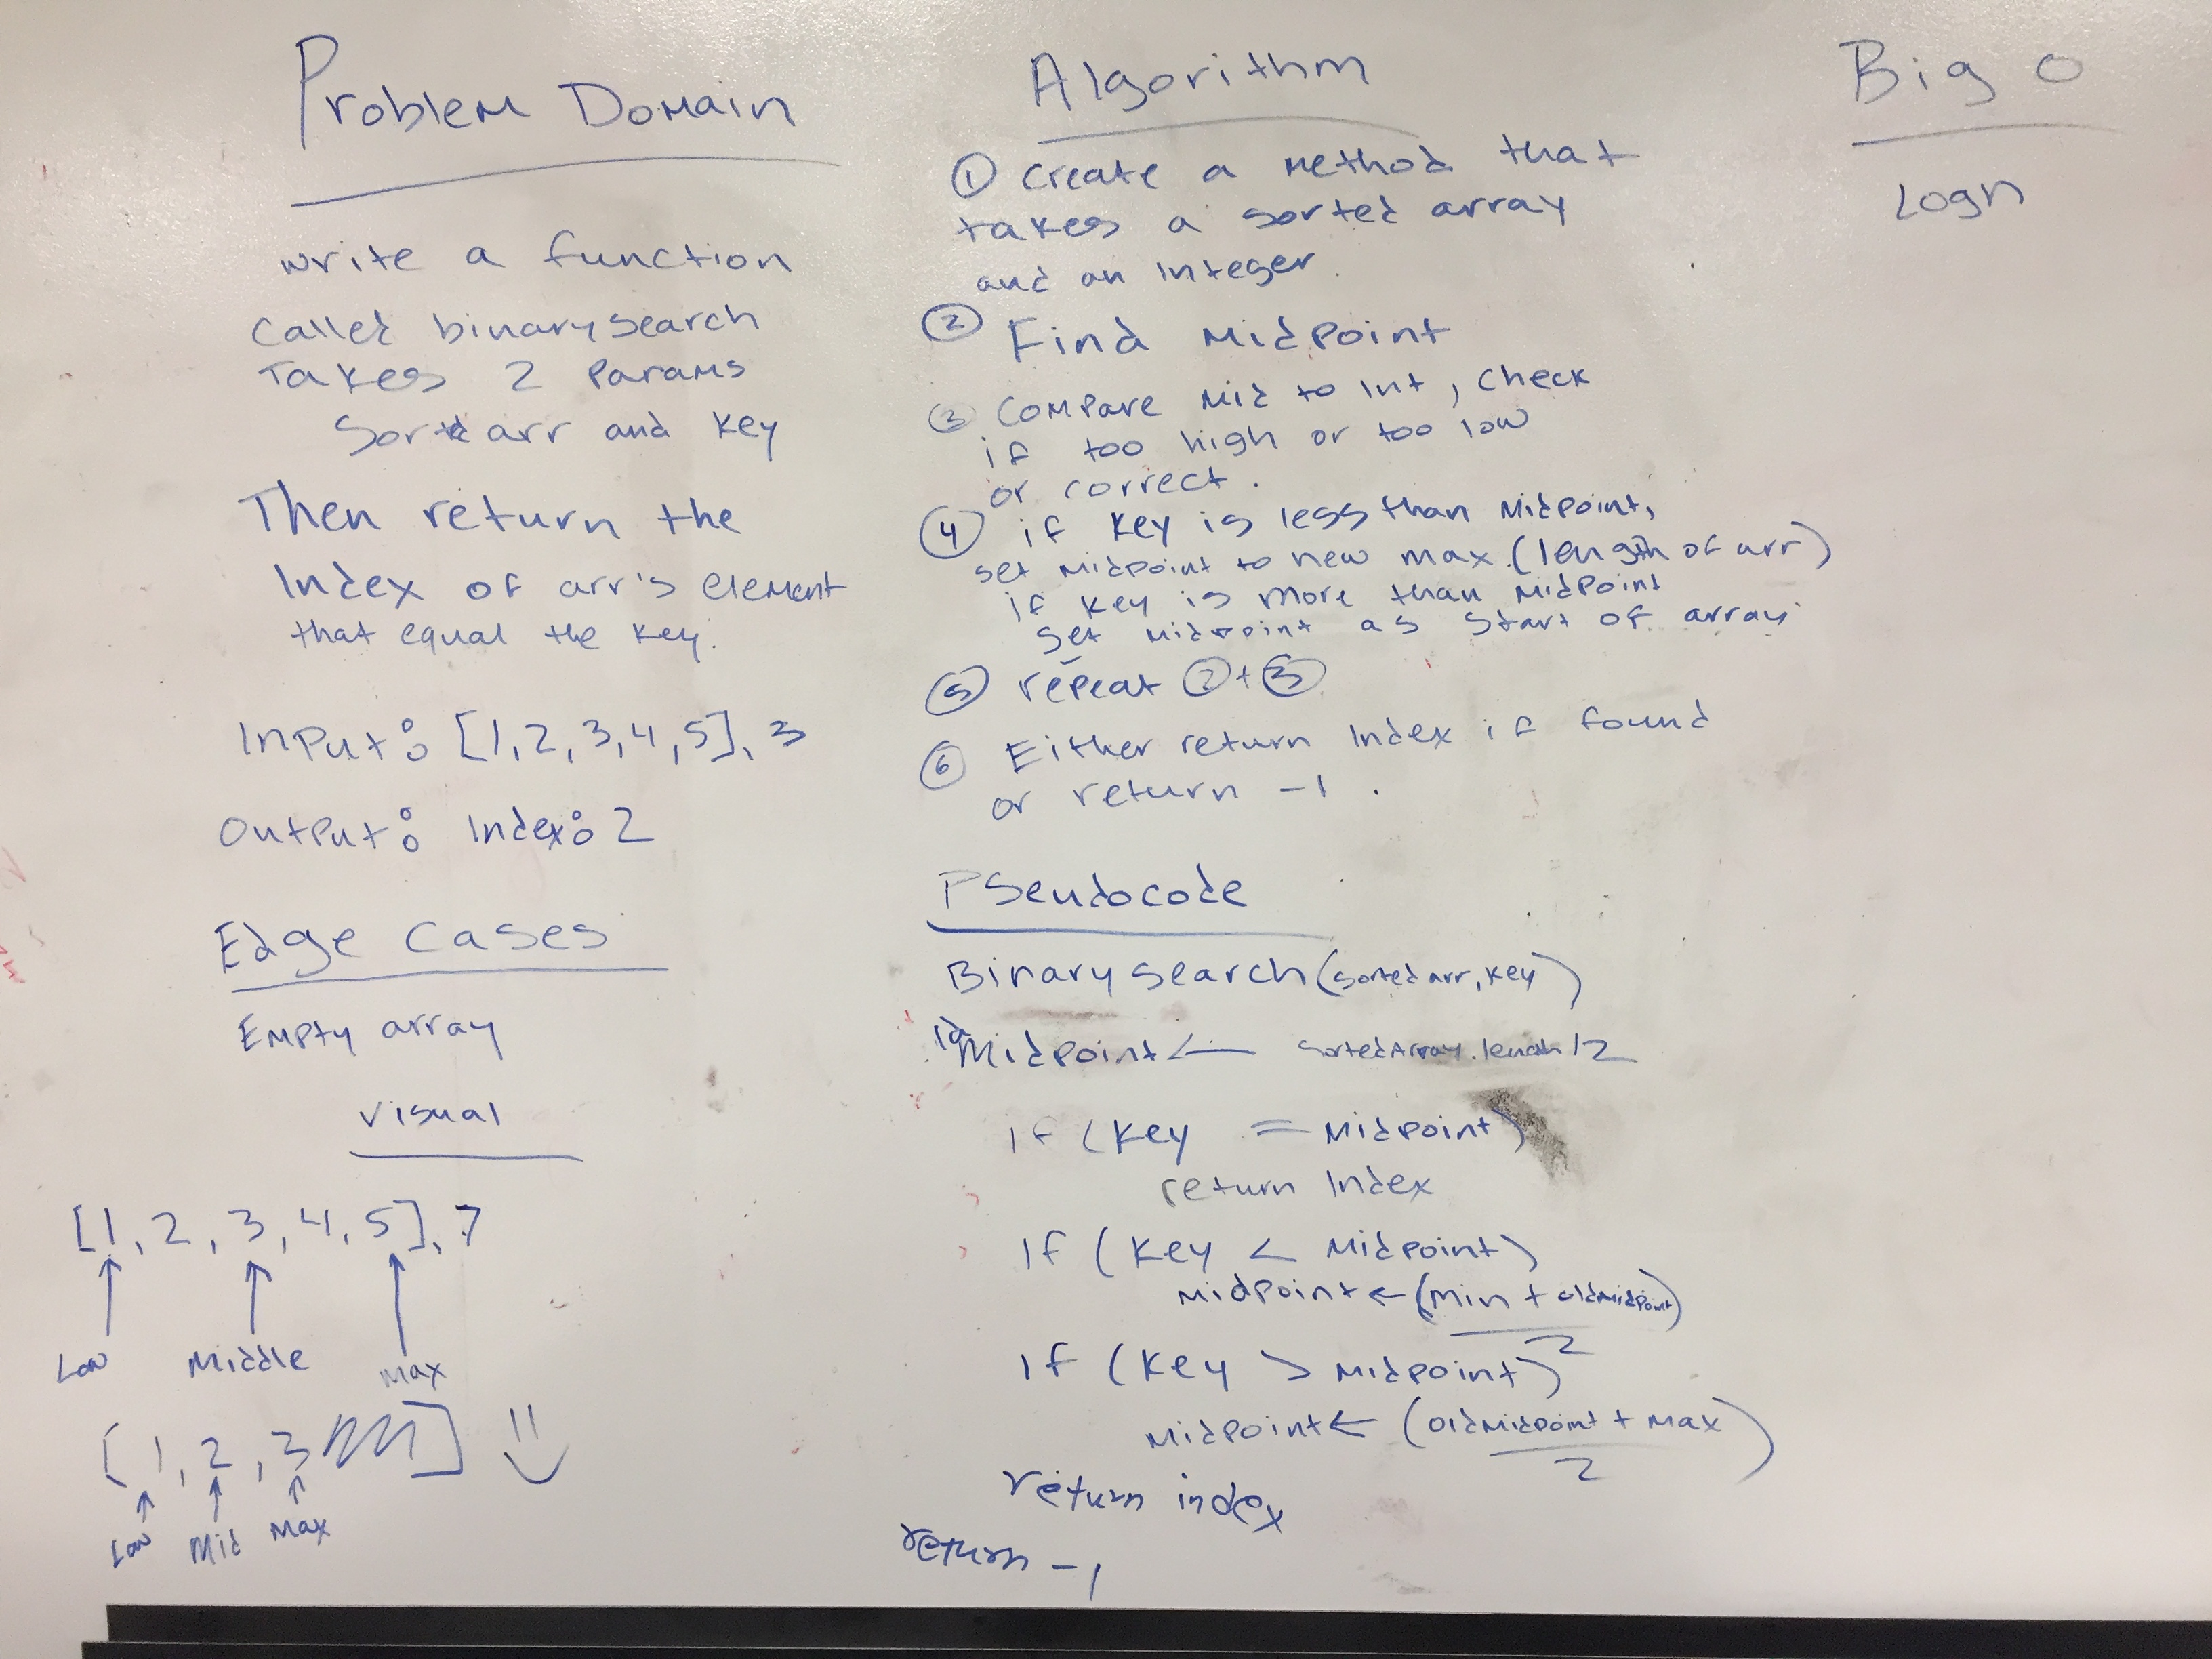 Problem Domain
write a function
Called binarysearch
Takes 2 Params
Sorted arr and key
Then return the
Index of arr's element
that equal the key.
Input: [1,2,3,4,5], 3
Output: Index: 2
Edge Cases
Empty array
Visual
[1, 2, 3, 4, 5], 7
Low Middle Max
[1, 2, 3 ]
Low Mid Max
Algorithm
① Create a Method that
takes a sorted array
and an integer.
② Find Midpoint
③ Compare Mid to Int, Check
if too high or too low
or correct.
④ if key is less than Midpoint,
set Midpoint to new max. (length of arr)
if key is more than Midpoint
set Midpoint as start of array
⑤ repeat ② + ③
⑥ Either return Index if found
or return -1.
PSeudocode
Binary Search (sorted arr, key)
Midpoint ← SortedArray.length/2
if (key = Midpoint)
return Index
if (key < Midpoint)
Midpoint ← (min + oldMidpoint)
2
if (key > Midpoint)
Midpoint ← (oldMidpoint + Max)
2
return index
return -1
Big O
Logn